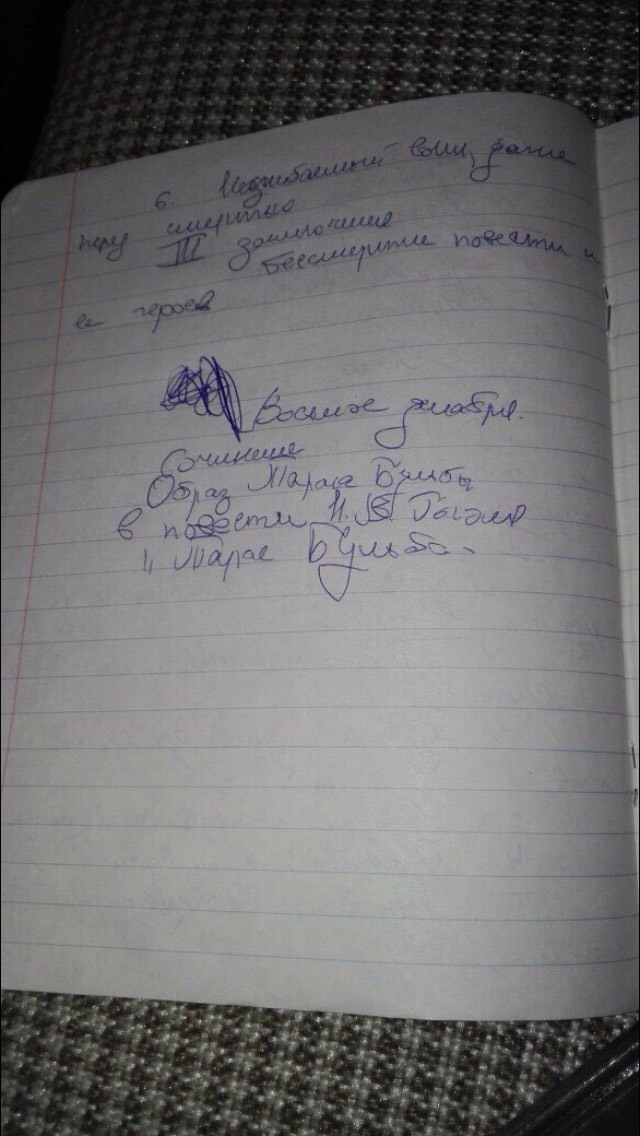 6. Несгибаемый воин, даже
перед смертью
III заключение
бессмертие повести и
ее героев
Восьмое декабря.
Сочинение
Образ Тараса Бульбы
в повести Н.В. Гоголя
"Тарас Бульба.